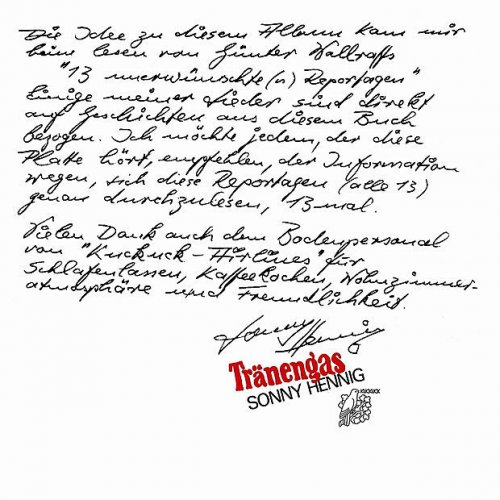 Die Idee zu diesem Album kam mir
beim lesen von Günter Wallraffs
"13 unerwünschte(n) Reportagen"
Einige meiner Lieder sind direkt
auf Geschichten aus diesem Buch
bezogen. Ich möchte jedem, der diese
Platte hört, empfehlen, der Information
wegen, sich diese Reportagen (alle 13)
genau durchzulesen, 13 mal.
Vielen Dank auch dem Bodenpersonal
von "Kuckuck-Airlines" für
Schlafenlassen, Kaffeekochen, Wohnzimmer-
atmosphäre und Freundlichkeit.
Sonny Hennig
Tränengas
SONNY HENNIG
KUCKUCK